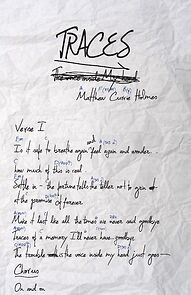 TRACES
The voice inside My head
Matthew Currie Holmes
Verse I
and
Is it safe to breathe again feel again and wonder..
how much of this is real
Settle in - the fortune tells the teller not to grin at
the promise of forever
Make it last like all the times we never said goodbye
traces of a memory I'll never have goodbye
The trouble the voice inside my head just goes—
Chorus
On and on